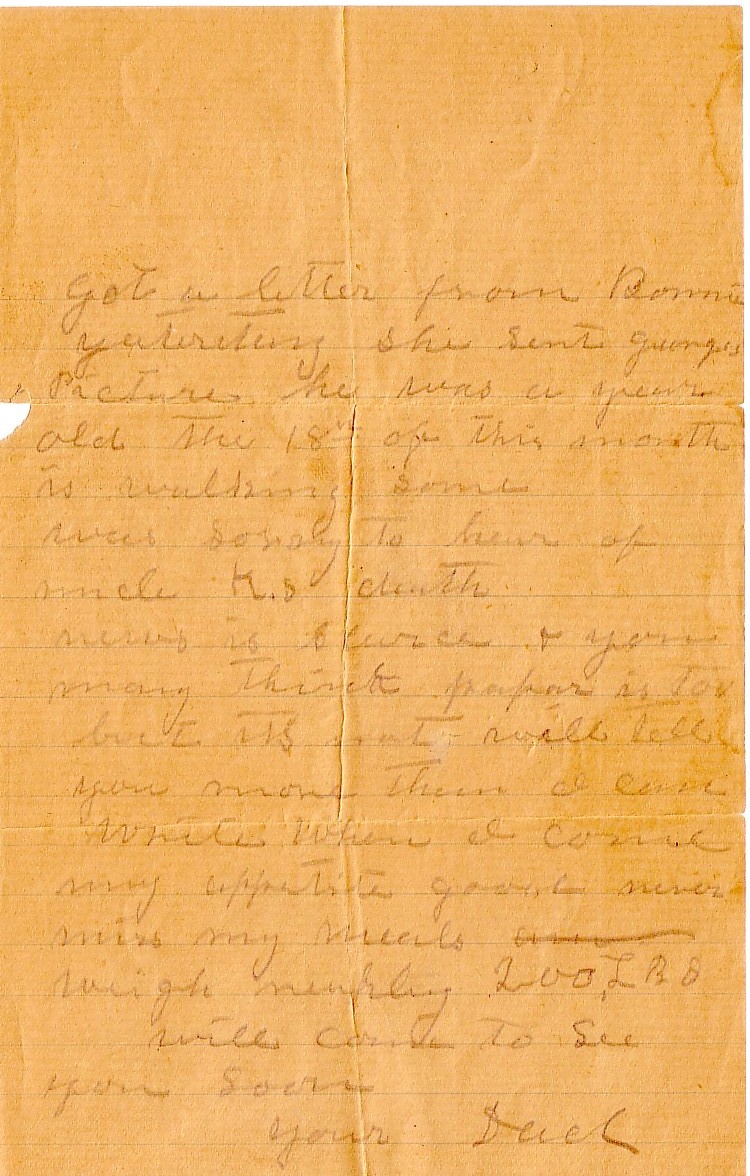 Got a letter from Bonnie
yesterday she sent Georges
Picture he was a year
old the 18th of this month
is walking some
was sorry to hear of
uncle K.s death
news is scarce & you
may think papar is too
but its not will tell
you more then I can
Write When I come
my appetite good never
miss my meals
weigh nearly 200, LBS
will come to See
you Soon
Your Dad